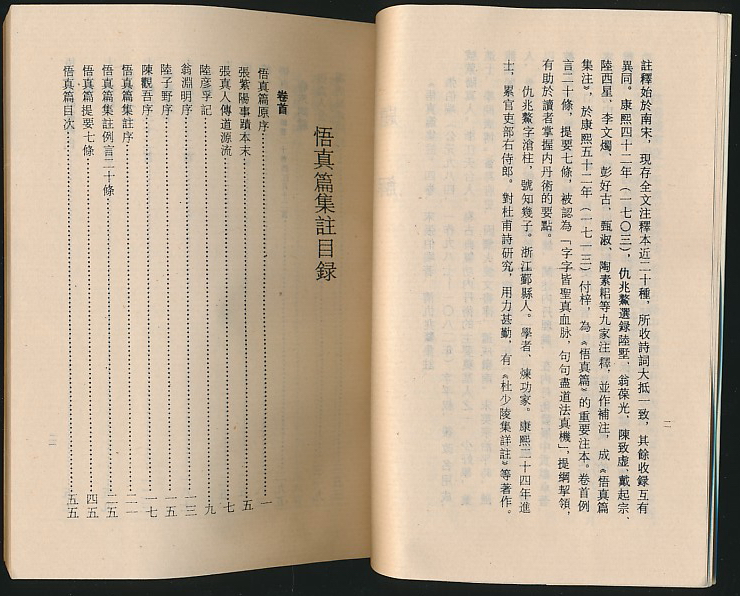 註釋始於南宋，現存全文注釋本近二十種，所收詩詞大抵一致，其餘收録互有
異同。康熙四十二年（一七〇三），仇兆鰲選録陸墅、翁葆光、陳致虛、戴起宗、
陸西星、李文燭、彭好古、甄淑、陶素耜等九家注釋，並作補注，成《悟真篇
集注》，於康熙五十二年（一七一三）付梓，為《悟真篇》的重要注本。卷首例
言二十條，提要七條，被認為「字字皆聖真血脉，句句盡道法真機」，提綱挈領，
有助於讀者掌握内丹術的要點。
仇兆鰲字滄柱，號知幾子。浙江鄞縣人。學者、煉功家。康熙二十四年進
士，累官吏部右侍郎。對杜甫詩研究，用力甚勤，有《杜少陵集詳註》等著作。
二
悟真篇集註目録
卷首
悟真篇原序……一
張紫陽事蹟本末……五
張真人傳道源流……七
陸彦孚記……九
翁淵明序……一三
陸子野序……一五
陳觀吾序……一七
悟真篇集註序……二一
悟真篇集註例言二十條……二五
悟真篇提要七條……四五
悟真篇目次……五五